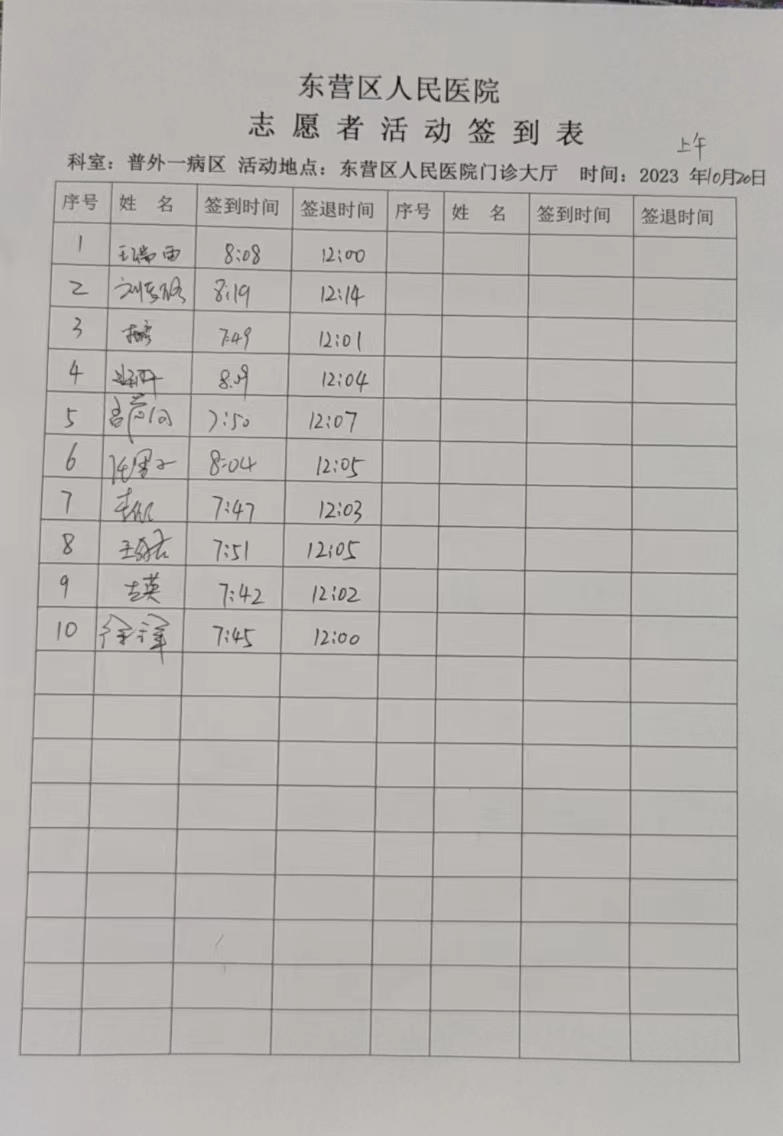 东营区人民医院
志愿者活动签到表
上午
科室：普外一病区 活动地点：东营区人民医院门诊大厅 时间：2023 年10月20日
序号 姓 名 签到时间 签退时间 序号 姓 名 签到时间 签退时间
1 8:08 12:00
2 8:19 12:14
3 7:49 12:01
4 12:04
5 7:50 12:07
6 8:04 12:05
7 7:47 12:03
8 7:51 12:05
9 7:42 12:02
10 7:45 12:00